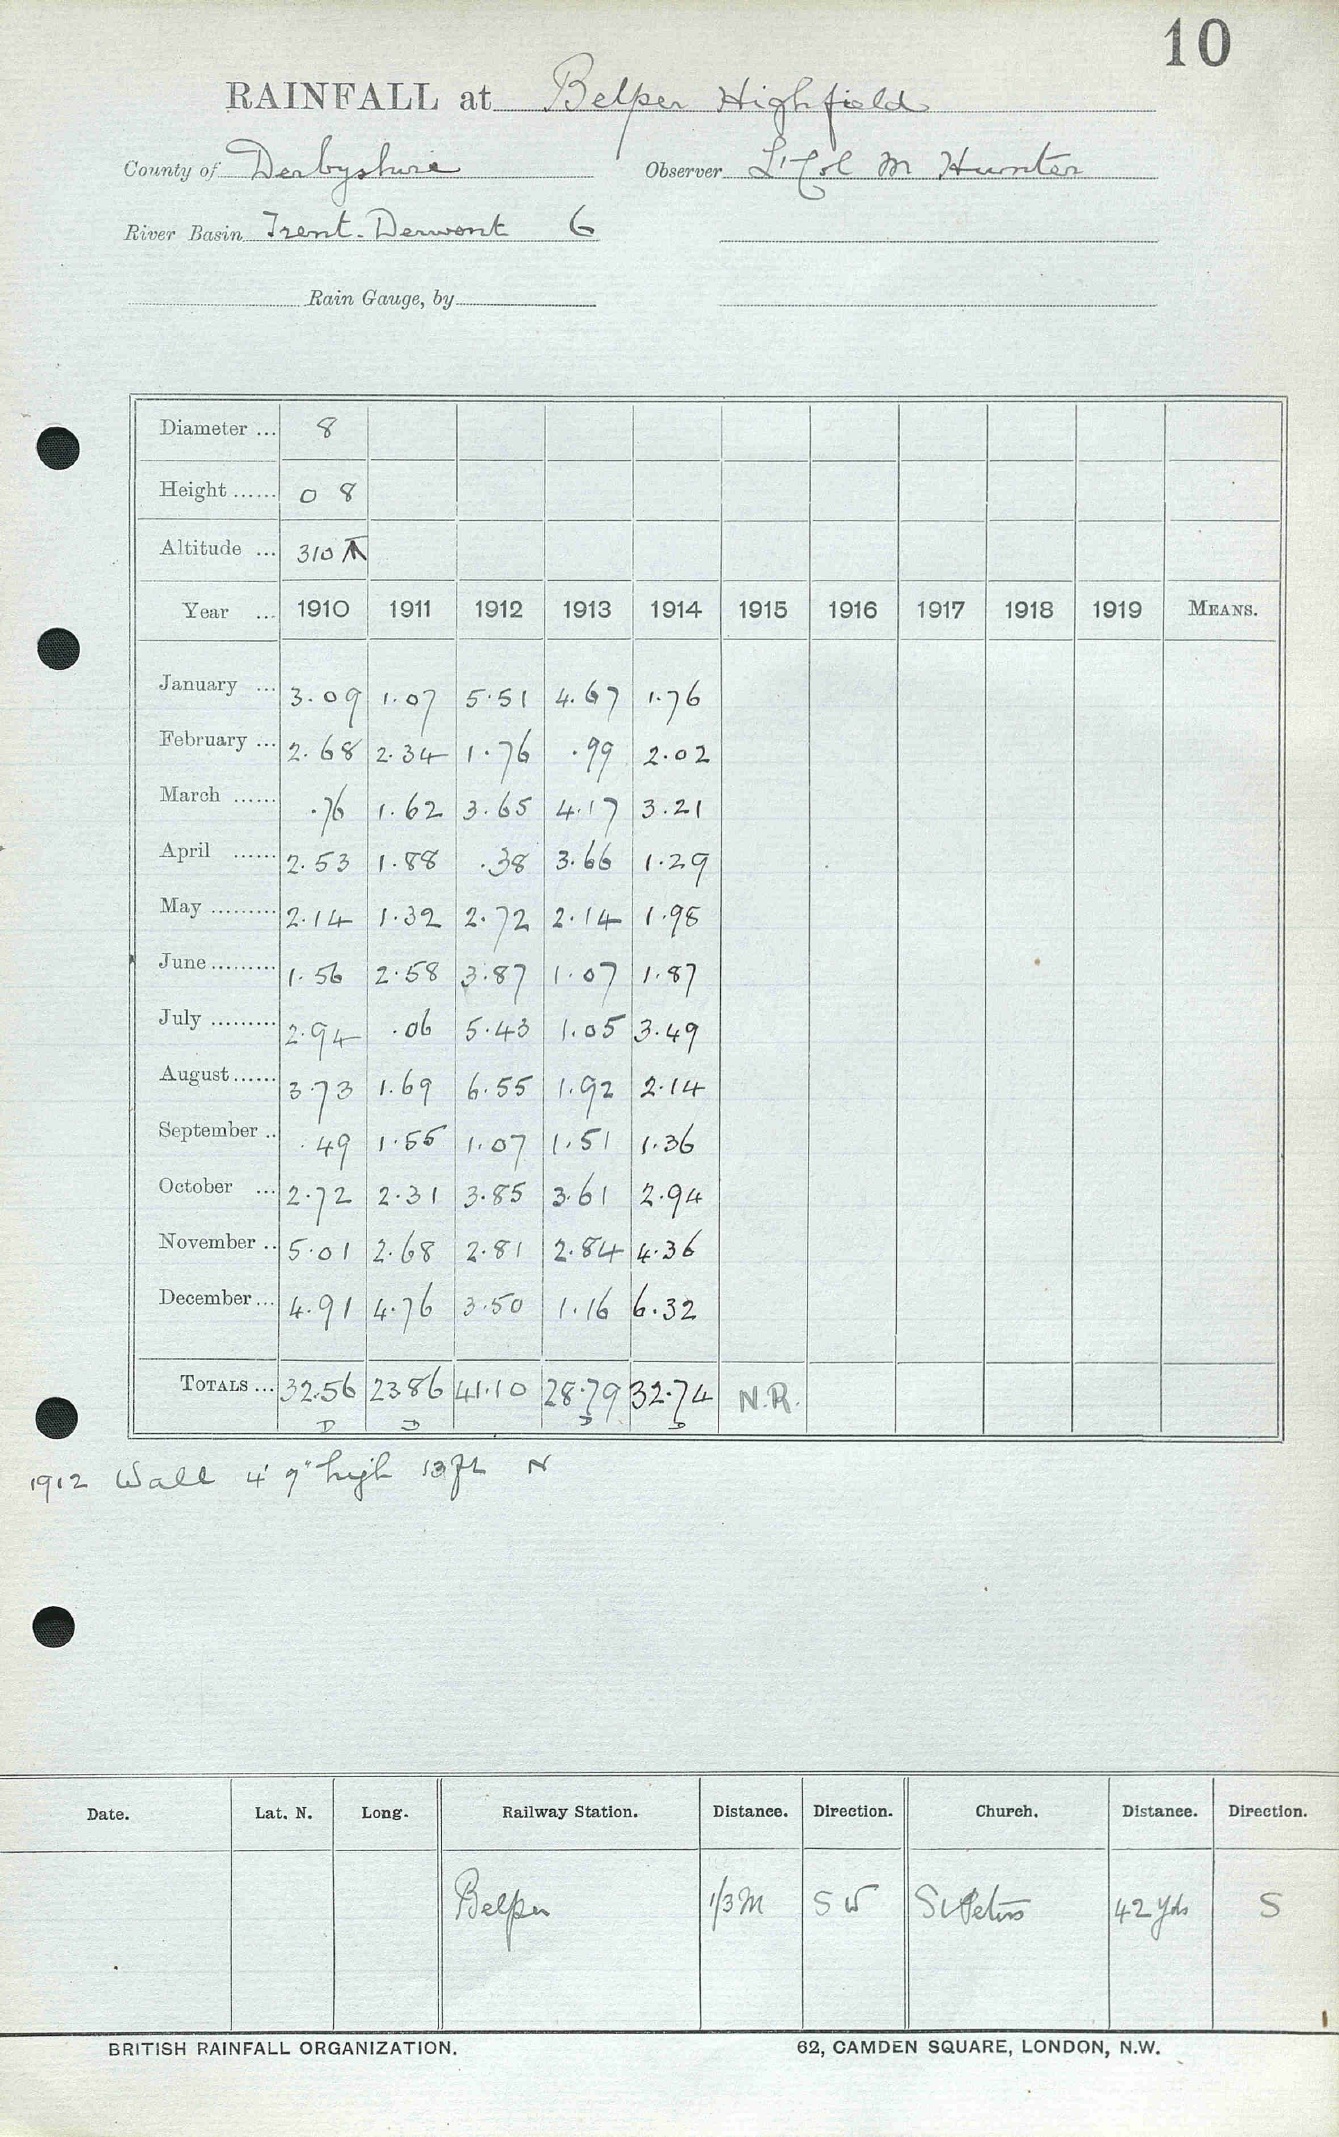 10
RAINFALL at Belper Highfield
County of Derbyshire Observer Lt Col M Hunter
River Basin Trent-Derwent 6
Rain Gauge, by
Diameter ... 8
Height ...... 0 8
Altitude ... 310
Year ... 1910 1911 1912 1913 1914 1915 1916 1917 1918 1919 MEANS.
January ... 3.09 1.07 5.51 4.67 1.76
February ... 2.68 2.34 1.76 .99 2.02
March ...... .76 1.62 3.65 4.17 3.21
April ...... 2.53 1.88 .38 3.66 1.29
May ......... 2.14 1.32 2.72 2.14 1.98
June ......... 1.56 2.58 3.87 1.07 1.87
July ......... 2.94 .06 5.43 1.05 3.49
August ...... 3.73 1.69 6.55 1.92 2.14
September .. .49 1.55 1.07 1.51 1.36
October ... 2.72 2.31 3.85 3.61 2.94
November .. 5.01 2.68 2.81 2.84 4.36
December ... 4.91 4.76 3.50 1.16 6.32
TOTALS ... 32.56 23.86 41.10 28.79 32.74 N.R.
D D D D
1912 Wall 4' 9" high 13 ft N
Date. Lat. N. Long. Railway Station. Distance. Direction. Church. Distance. Direction.
Belper 1/3 M SW St Peters 42 yds S
BRITISH RAINFALL ORGANIZATION. 62, CAMDEN SQUARE, LONDON, N.W.